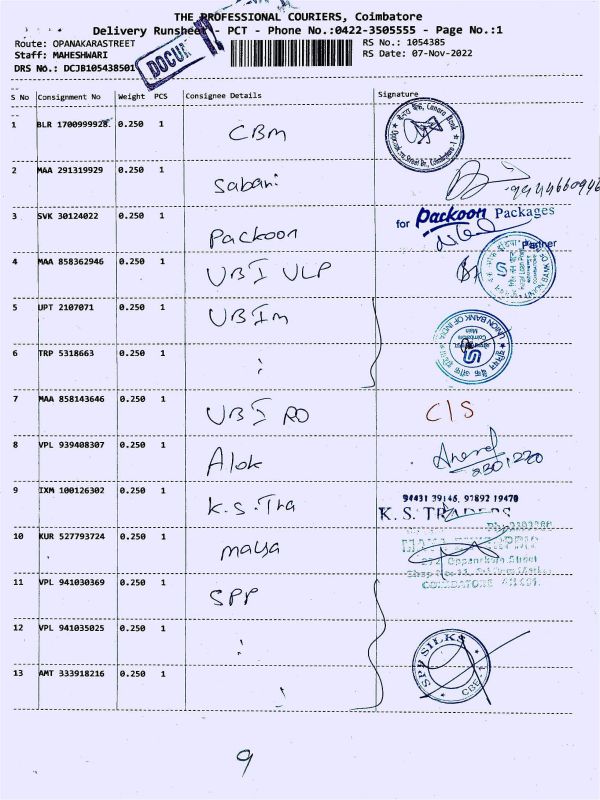 THE PROFESSIONAL COURIERS, Coimbatore
Delivery Runsheet - PCT - Phone No.:0422-3505555 - Page No.:1
Route: OPANAKARASTREET
RS No.: 1054385
Staff: MAHESHWARI
RS Date: 07-Nov-2022
DRS No.: DCJB105438501
DOCUM
S No Consignment No Weight PCS Consignee Details Signature
1 BLR 1700999928 0.250 1 CBM
Canara Bank
2 MAA 291319929 0.250 1 Sabani
3 SVK 30124022 0.250 1 Packoon
for Packoon Packages
Partner
4 MAA 858362946 0.250 1 UBI ULP
UNION BANK OF
5 UPT 2107071 0.250 1 UBIM
UNION BANK OF INDIA
Coimbatore
Main
6 TRP 5318663 0.250 1 :
7 MAA 858143646 0.250 1 UBI RO C/S
8 VPL 939408307 0.250 1 Alok Anand
9 IXM 100126302 0.250 1 K.S.Tra
94431 39146, 97892 19470
K. S. TRADERS
10 KUR 527793724 0.250 1 maya
272 Oppankara Street
COIMBATORE
11 VPL 941030369 0.250 1 SPP
12 VPL 941035025 0.250 1 :
SPP SILKS
CBE - 1
13 AMT 333918216 0.250 1
9